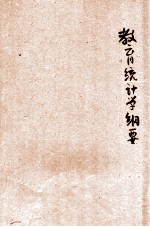 教育统计学纲要